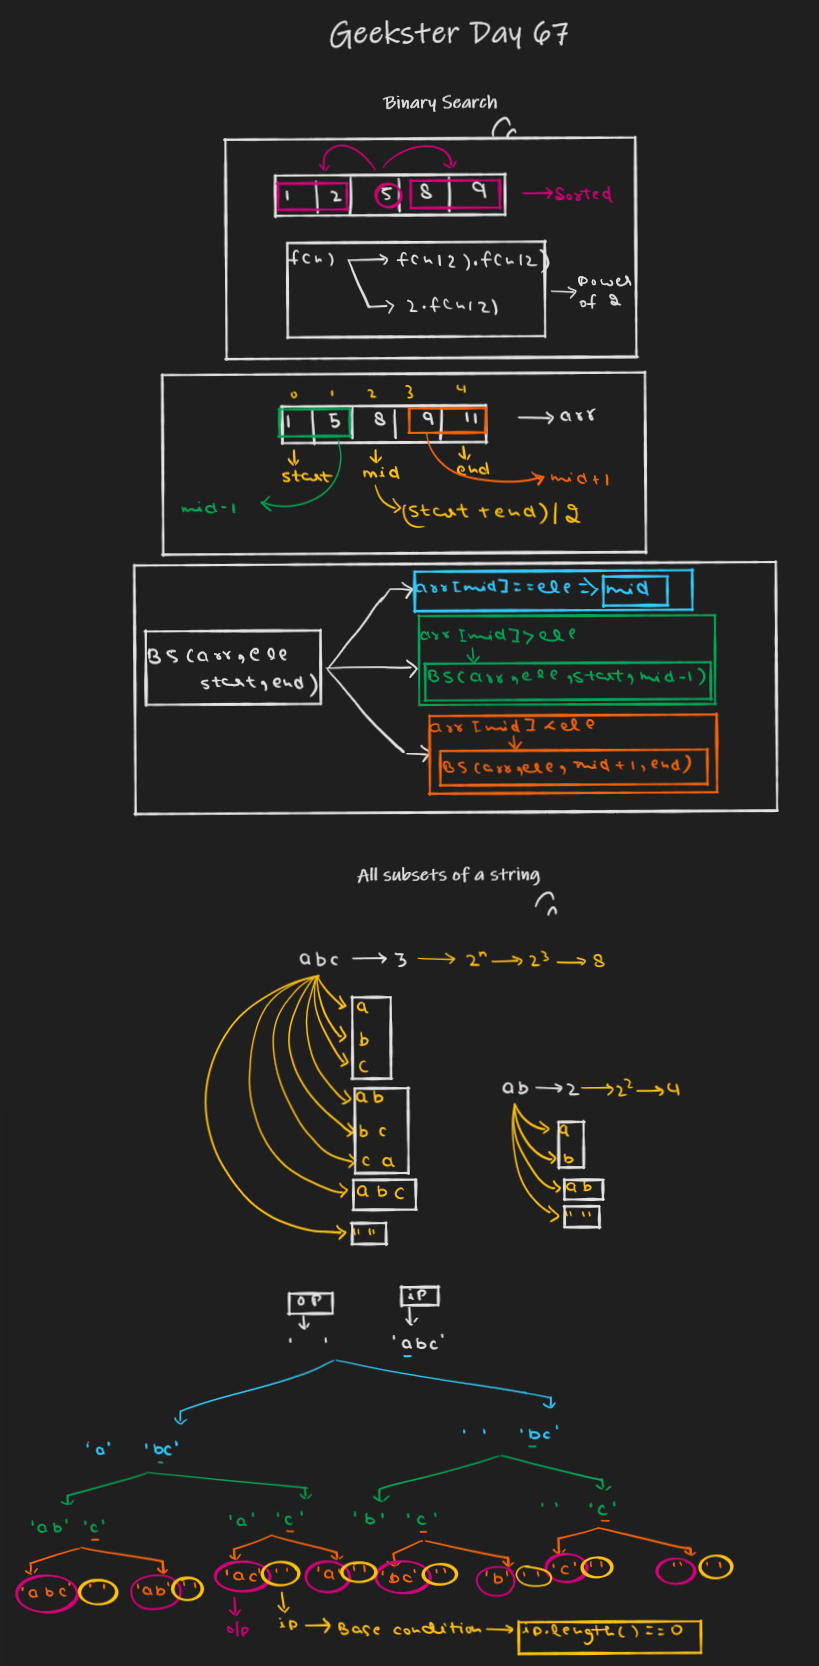 Geekster Day 67
Binary Search
1 2 5 8 9 → Sorted
f(n) → f(n/2).f(n/2)
→ 2.f(n/2)
→ Power of 2
0 1 2 3 4
1 5 8 9 11 → arr
start mid end
mid+1
mid-1
(start + end)/2
arr[mid]==ele => mid
arr[mid]>ele
BS(arr,ele
start,end)
BS(arr,ele,start,mid-1)
arr[mid]<ele
BS(arr,ele,mid+1,end)
All subsets of a string
abc → 3 → 2ⁿ → 2³ → 8
a
b
c
ab
bc
ca
abc
" "
ab → 2 → 2² → 4
a
b
ab
" "
OP iP
' ' 'abc'
'a' 'bc' ' ' 'bc'
'ab' 'c' 'a' 'c' 'b' 'c' ' ' 'c'
'abc' '' 'ab' '' 'ac' '' 'a' '' 'bc' '' 'b' '' 'c' '' '' ''
o/p
ip → Base condition → ip.length()==0